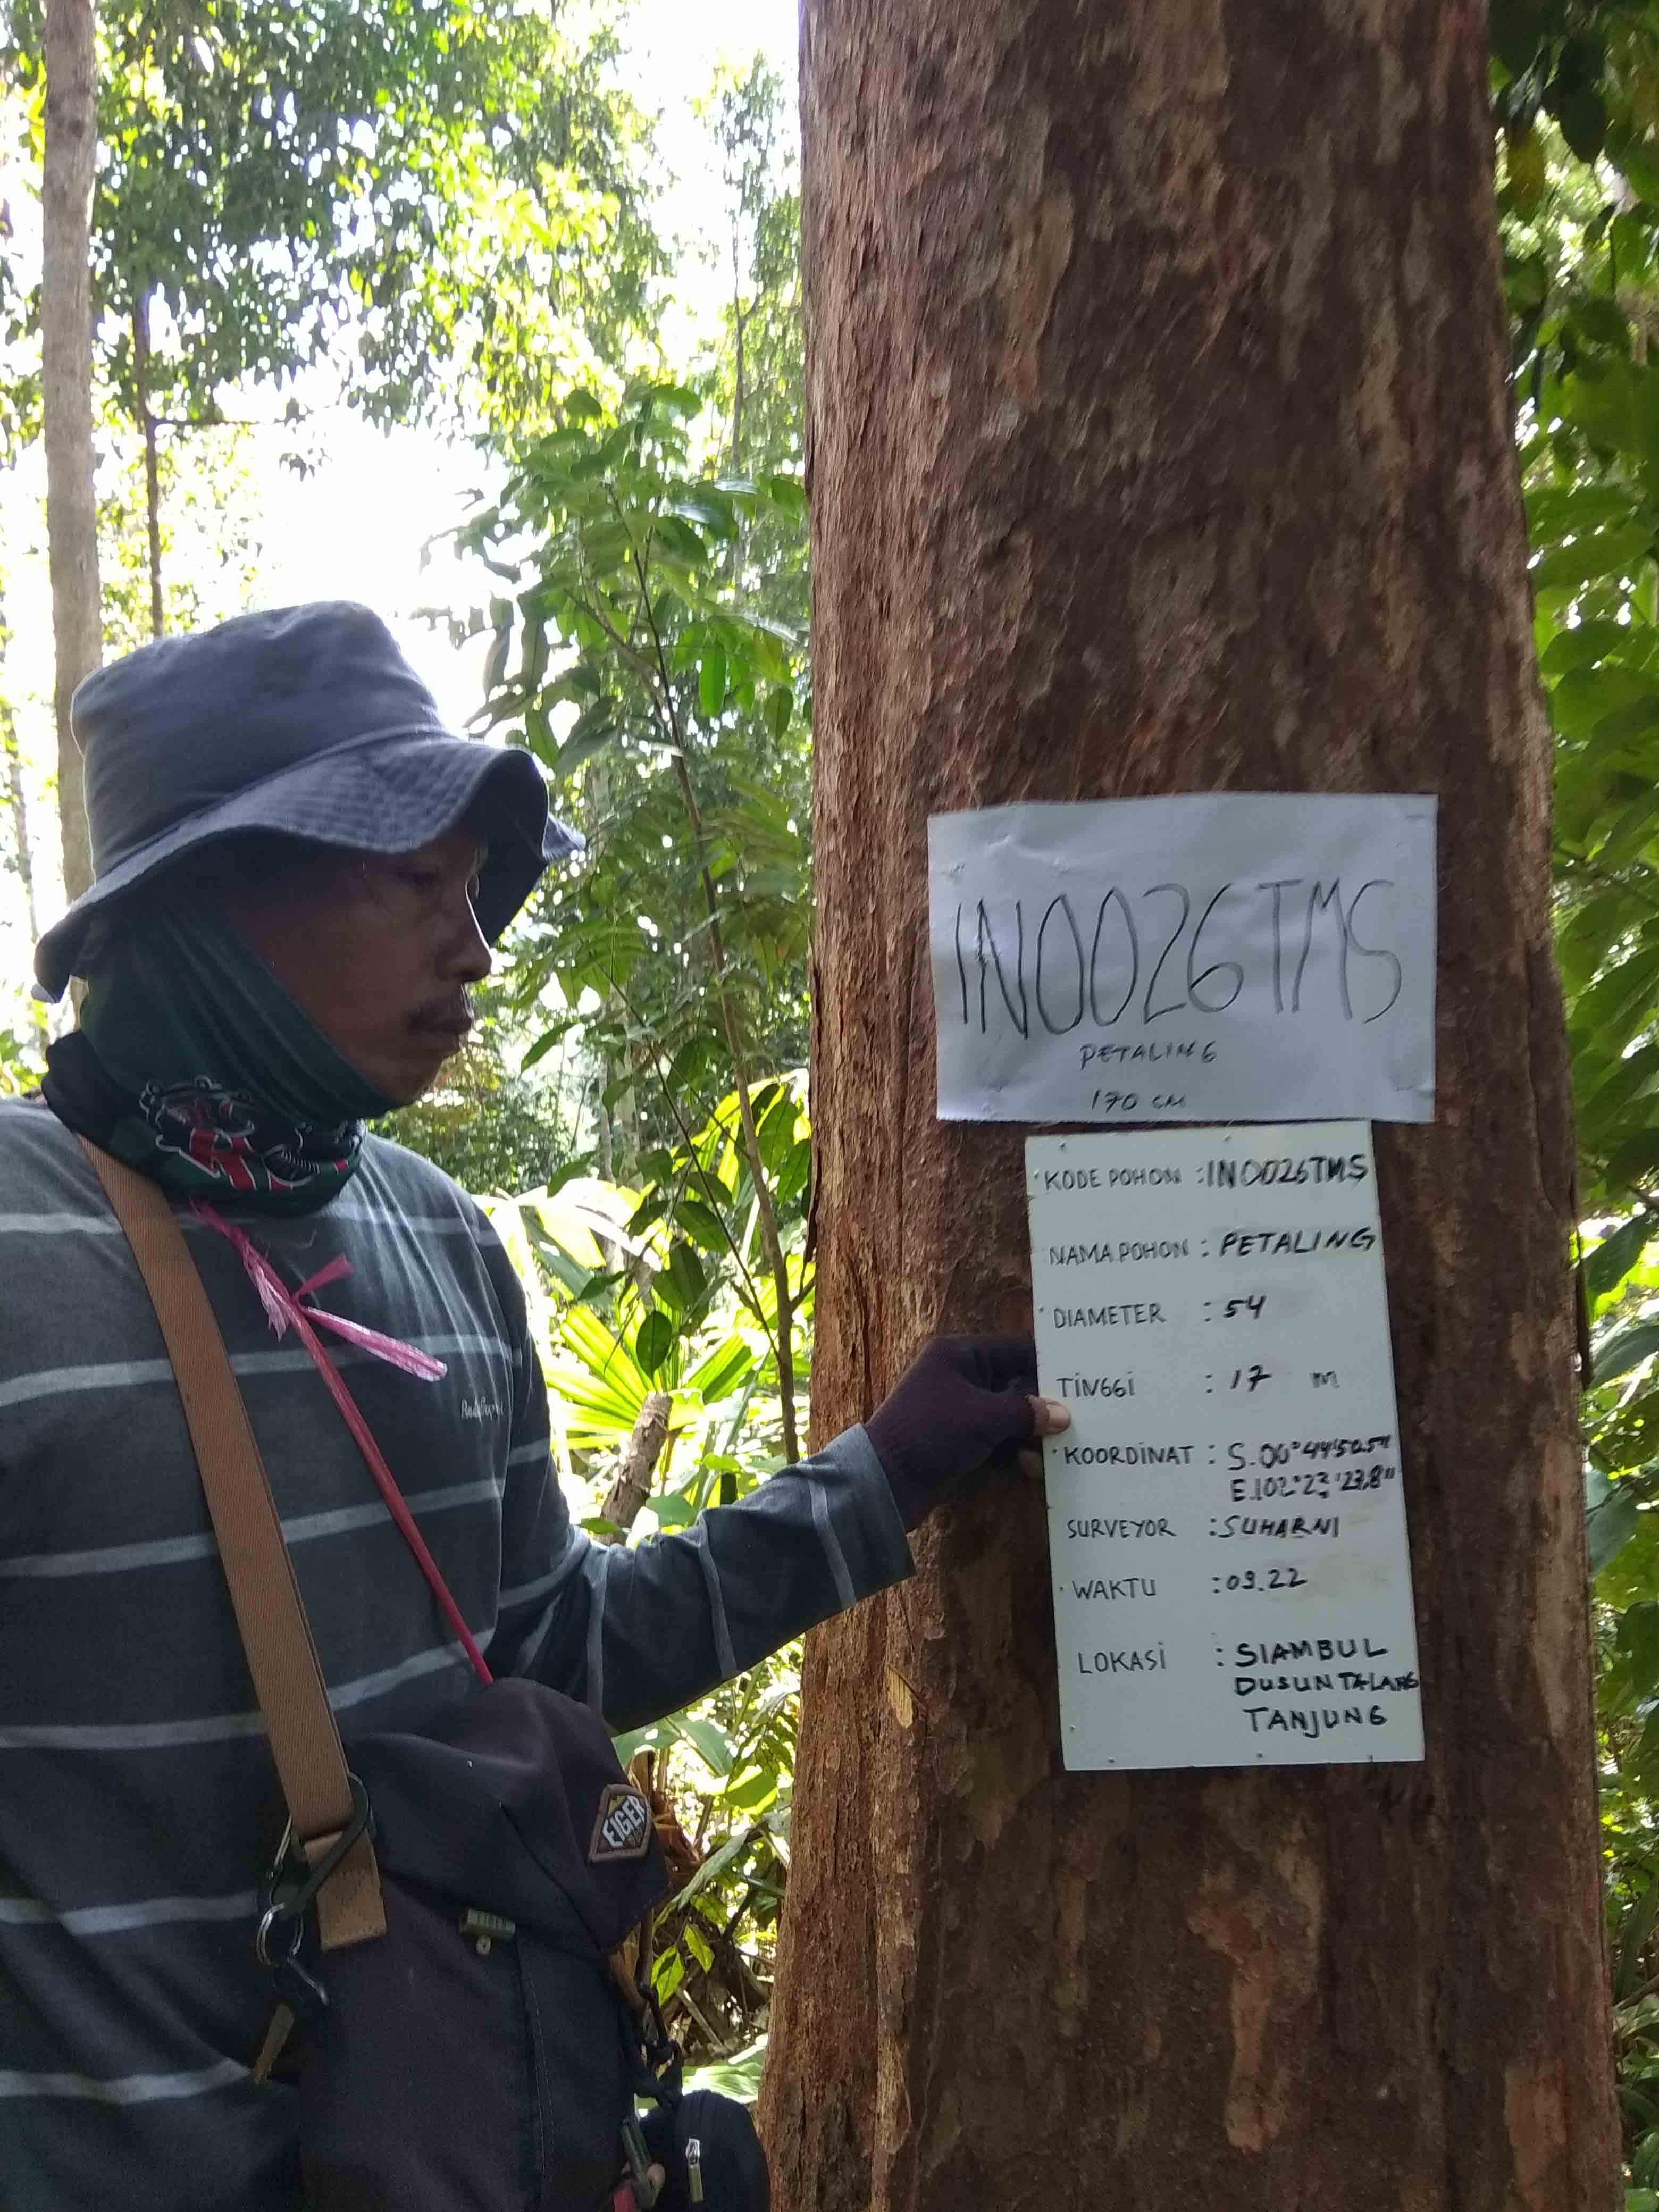 IN0026TMS
PETALING
170 CM
KODE POHON : IN0026TMS
NAMA POHON : PETALING
DIAMETER : 54
TINGGI : 17 m
KOORDINAT : S.00°44'50.5"
E.102°23'23,8"
SURVEYOR : SUHARNI
WAKTU : 09.22
LOKASI : SIAMBUL
DUSUN TALANG
TANJUNG
EIGER
EIGER